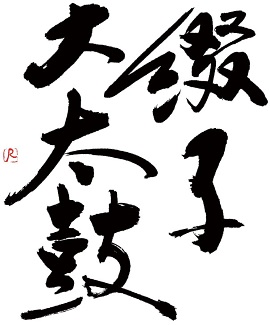 綴子
大太鼓